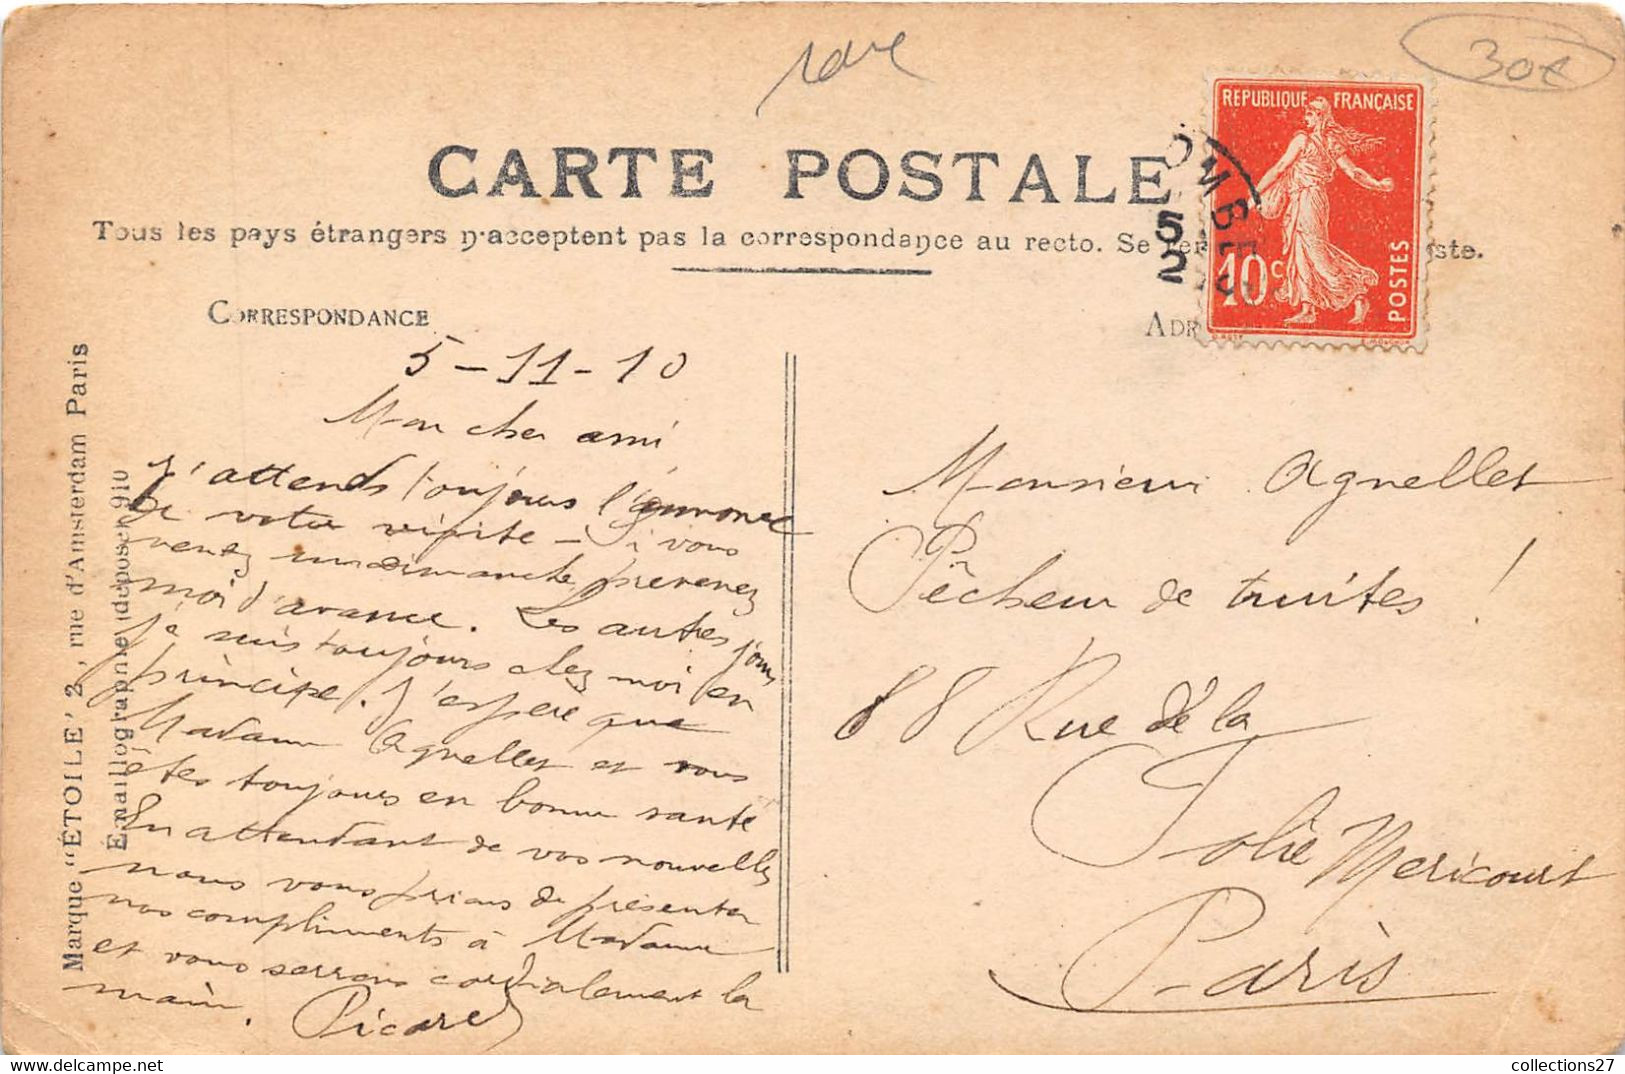 rare
30€
REPUBLIQUE FRANÇAISE
10c
POSTES
COLOMBES
5
2
CARTE POSTALE
Tous les pays étrangers n'acceptent pas la correspondance au recto. Se
iste.
CORRESPONDANCE
ADR
5-11-10
Mon cher ami
J'attends toujours l'annonce
de votre visite - Si vous
venez un dimanche prevenez
moi d'avance. Les autres jours
je suis toujours chez moi en
principe. J'espère que
Madame Agnellet et vous
êtes toujours en bonne santé
En attendant de vos nouvelles
nous vous prions de présenter
nos compliments à Madame
et vous serrons cordialement la
main. Picard
Monsieur Agnellet
Pêcheur de truites !
88 Rue de la
Folie Mericourt
Paris
Marque "ÉTOILE" 2, rue d'Amsterdam Paris
Émailiographie (déposé) 910
collections27